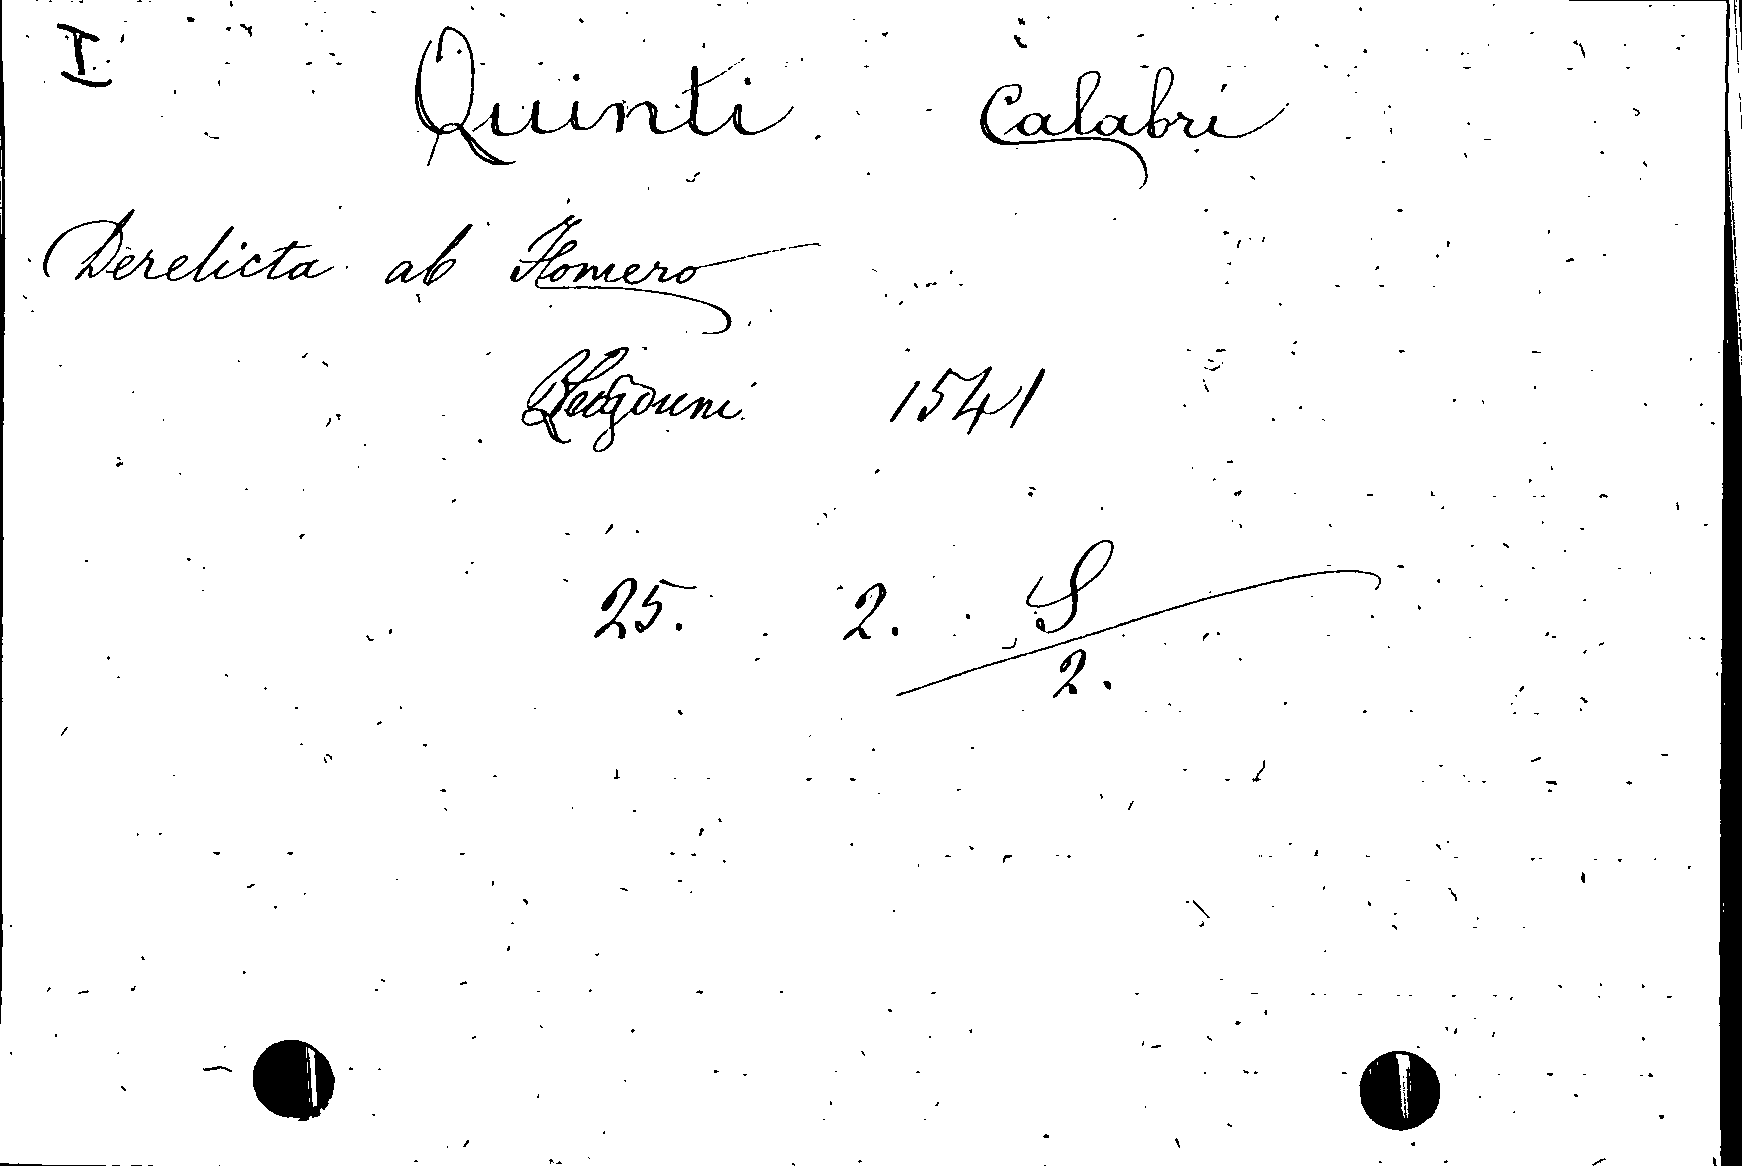 I
Quinti Calabri
Derelicta ab Homero
Lugouni 1541
25. 2. S
2.